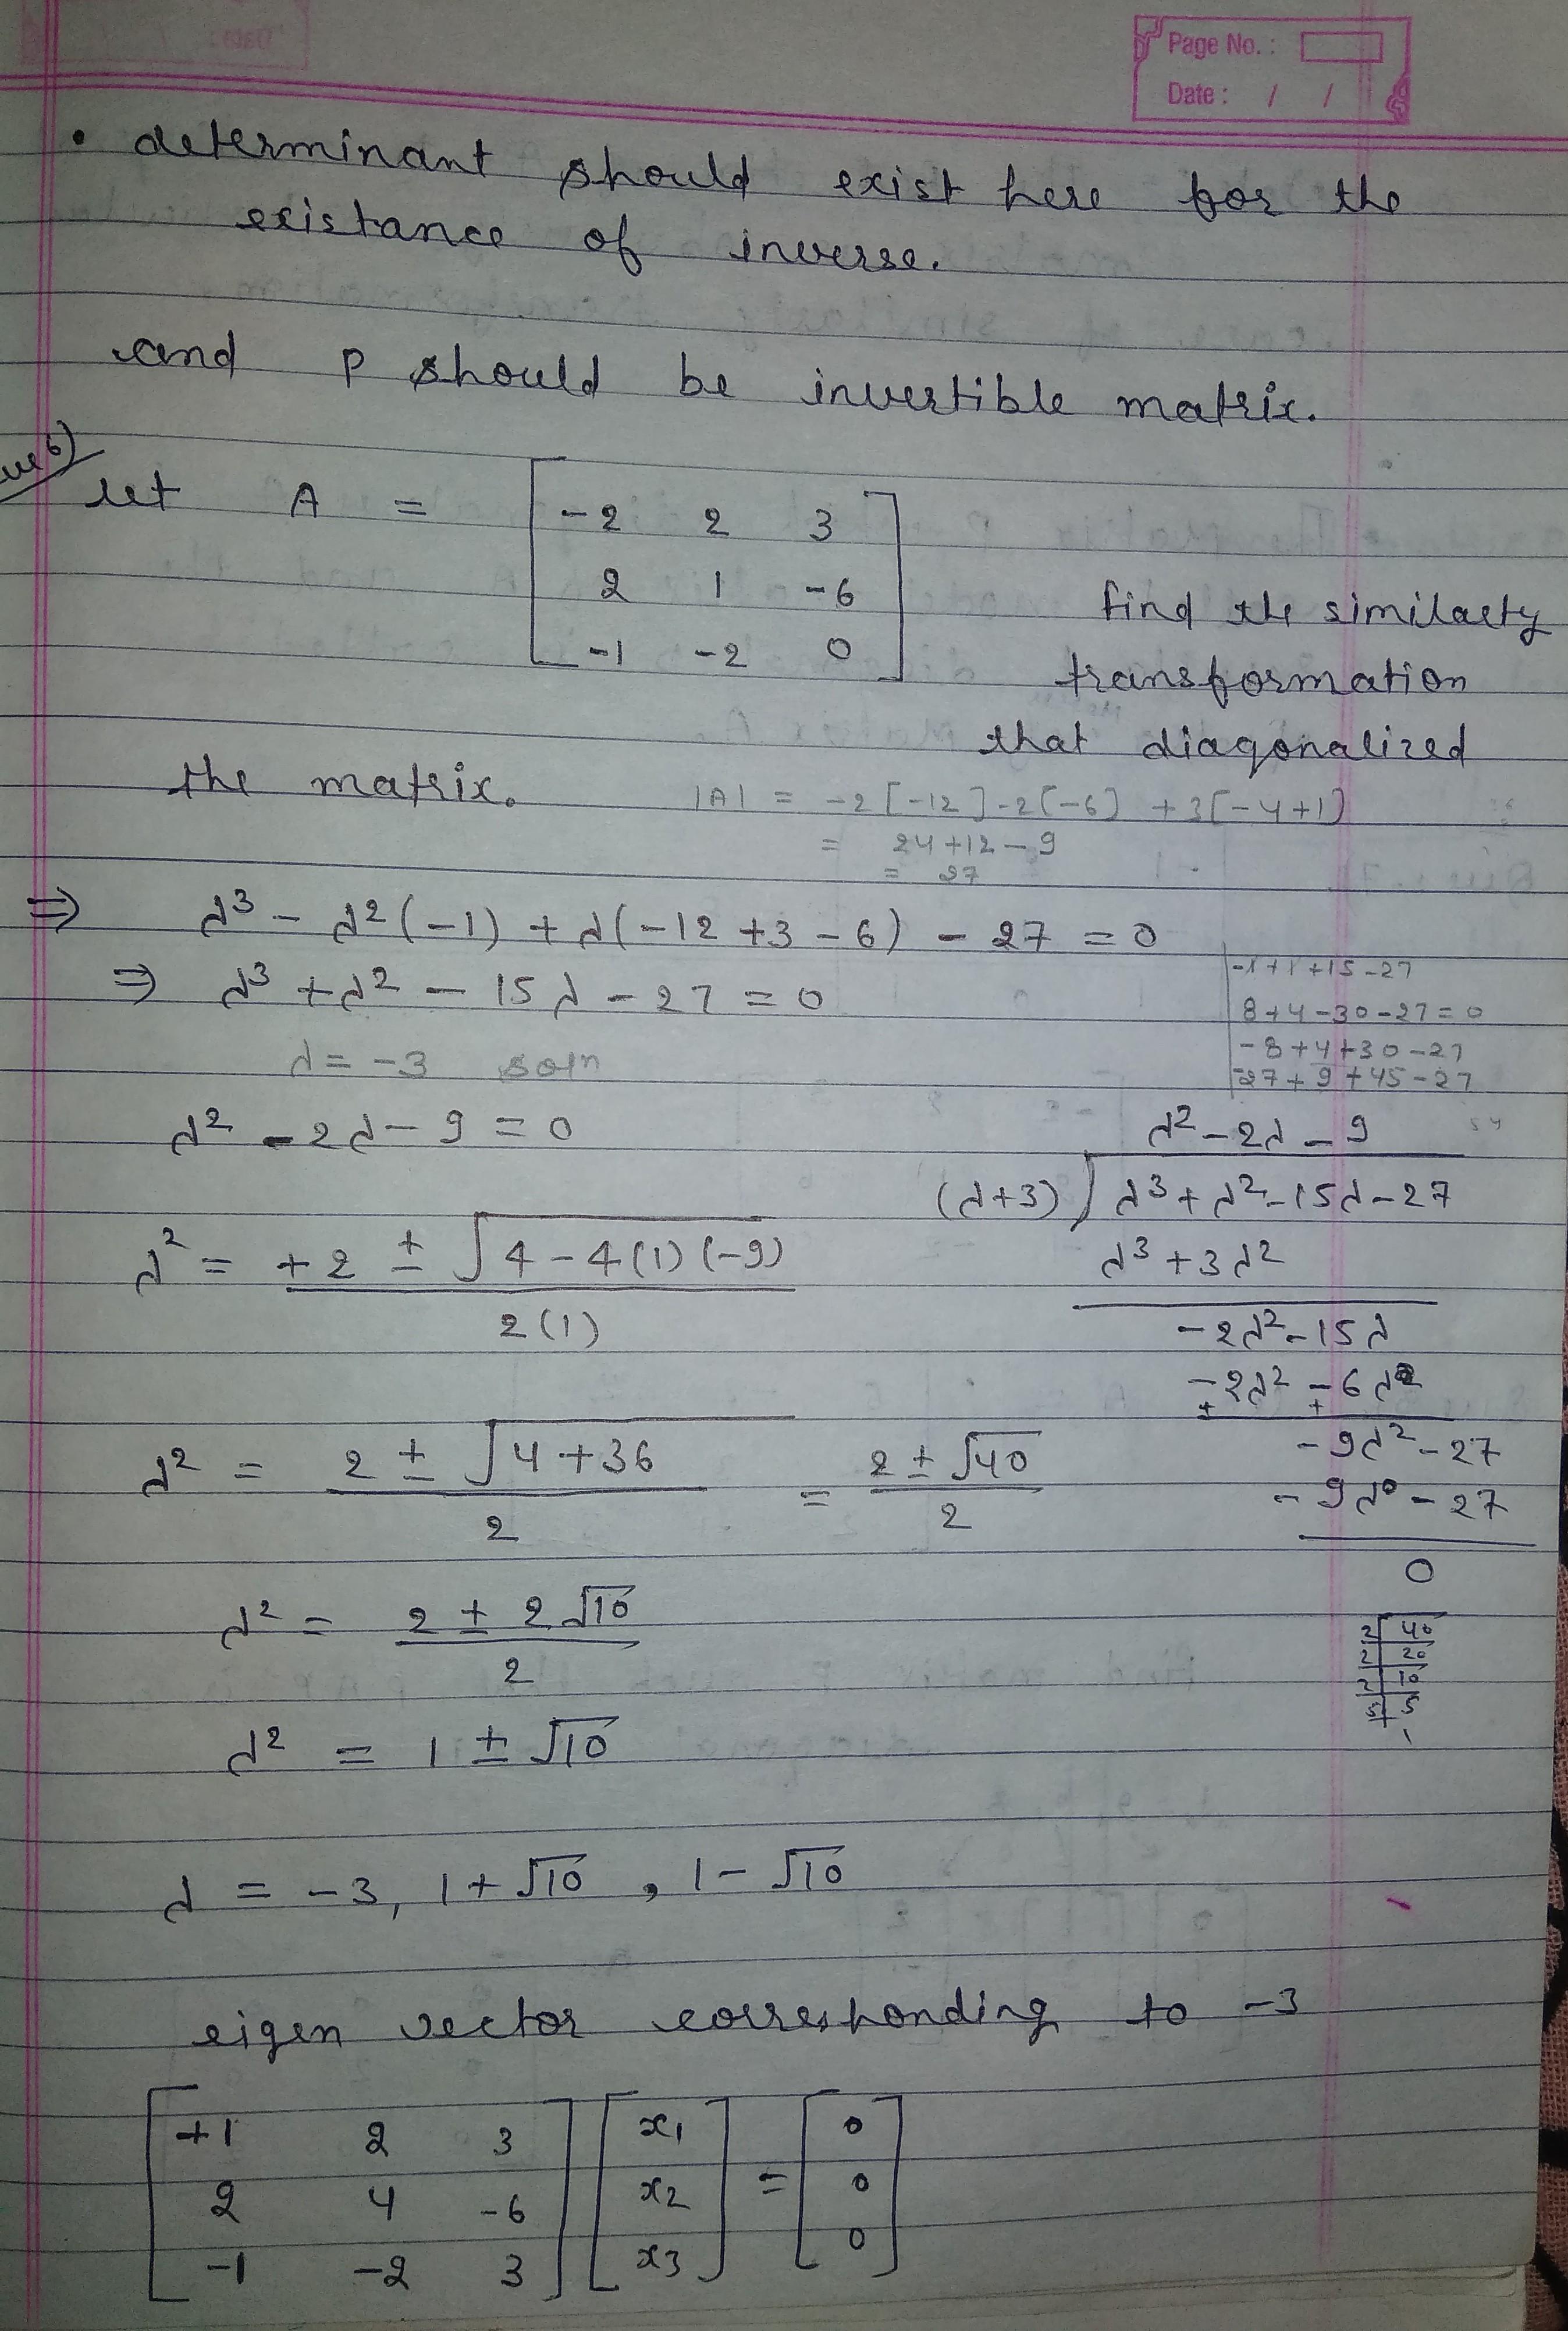 Page No. :
Date : / /
• determinant should exist here for the
existance of inverse.
and p should be invertible matrix.
6)
let A = [ -2 2 3
2 1 -6
-1 -2 0 ]
find the similarty
transformation
that diagonalized
the matrix.
|A| = -2[-12]-2[-6] +3[-4+1]
= 24+12-9
= 27
⇒ λ³ - λ²(-1) + λ(-12+3-6) - 27 = 0
⇒ λ³ + λ² - 15λ - 27 = 0
-1+1+15-27
8+4-30-27=0
-8+4+30-27
-27+9+45-27
λ = -3 soln
λ² - 2λ - 9 = 0
λ² - 2λ - 9
(λ+3) ) λ³ + λ² - 15λ - 27
λ³ + 3λ²
-2λ² - 15λ
-2λ² - 6λ
+ +
-9λ² - 27
-9λ - 27
0
λ² = +2 ± √4-4(1)(-9)
2(1)
λ² = 2 ± √4+36 = 2 ± √40
2 2
λ² = 2 ± 2√10
2
2 40
2 20
2 10
5 5
1
λ² = 1 ± √10
λ = -3, 1+√10 , 1-√10
eigen vector corresponding to -3
[ +1 2 3 ] [ x1 ] = [ 0 ]
[ 2 4 -6 ] [ x2 ] [ 0 ]
[ -1 -2 3 ] [ x3 ] [ 0 ]